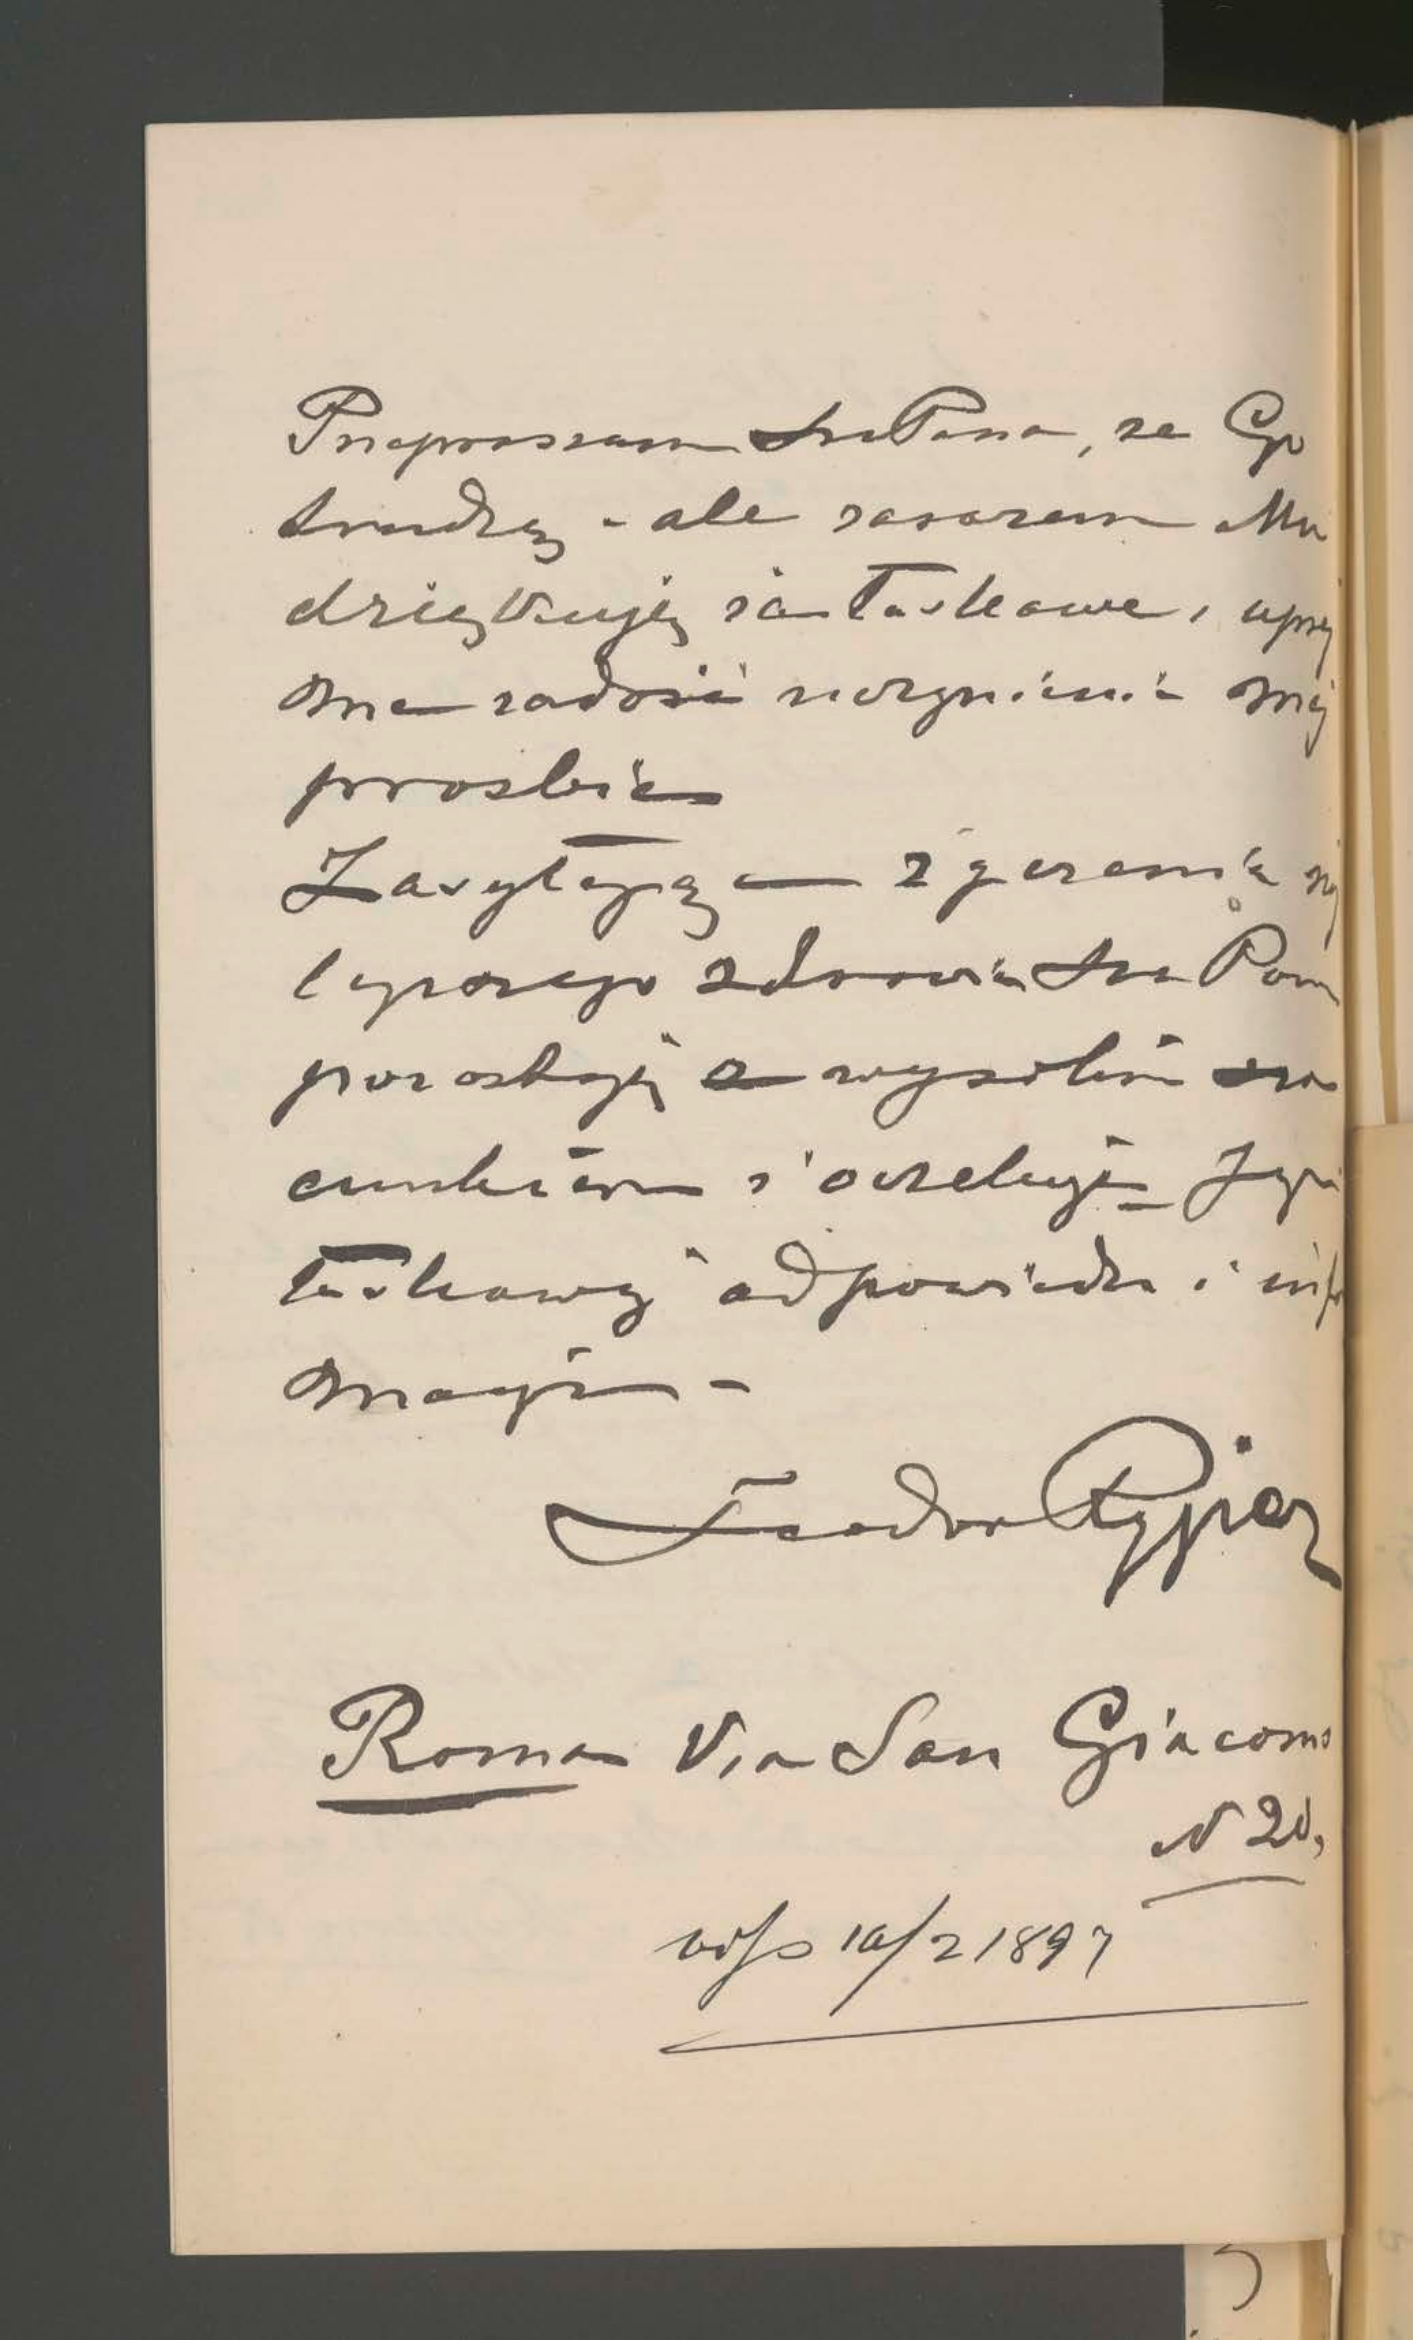 Przepraszam Sz Pana, że Go
trudzę - ale zarazem Mu
dziękuję za łaskawe i uprzej
me zadość uczynienie mej
prośbie
Zasyłając życzenia naj
lepszego zdrowia Sz Panu
pozostaję z wysokim sza
cunkiem i oczekuję Jego
łaskawej odpowiedzi i infor
macyi -
Teodor Rygier
Roma Via San Giacomo
N 20,
10/2 1897